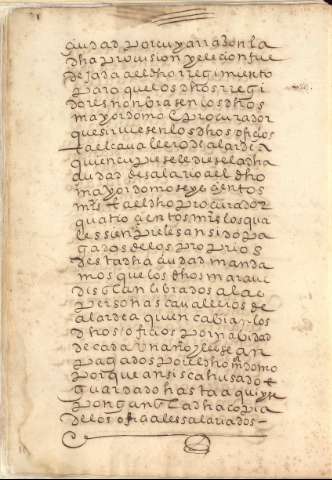 ciudad por cuya rrazon la
dha provision y elecion fue
dejada al dho rregimiento
para que los dhos rregi
dores nonbrasen los dhos
mayordomo e procurador
que sirviesen los dhos oficios
e al cavallero de alardea
quien cupiese le diese la dha
ciudad de salario al dho
mayordomo seys cientos
mrs e al dho procurador
quatro cientos mrs los qua
les sienpre les an sido pa
gados de los proprios
desta dha ciudad manda
mos que los dhos maravi
dis sean librados a las
personas cavalleros de
alardea quien cabian los
dhos oficios por mitad
de cada un año e le sean
pagados por el dho mdomo
porque ansi se a husado e
guardado hasta aqui y se
pongan en la dha copia
de los oficiales salariados